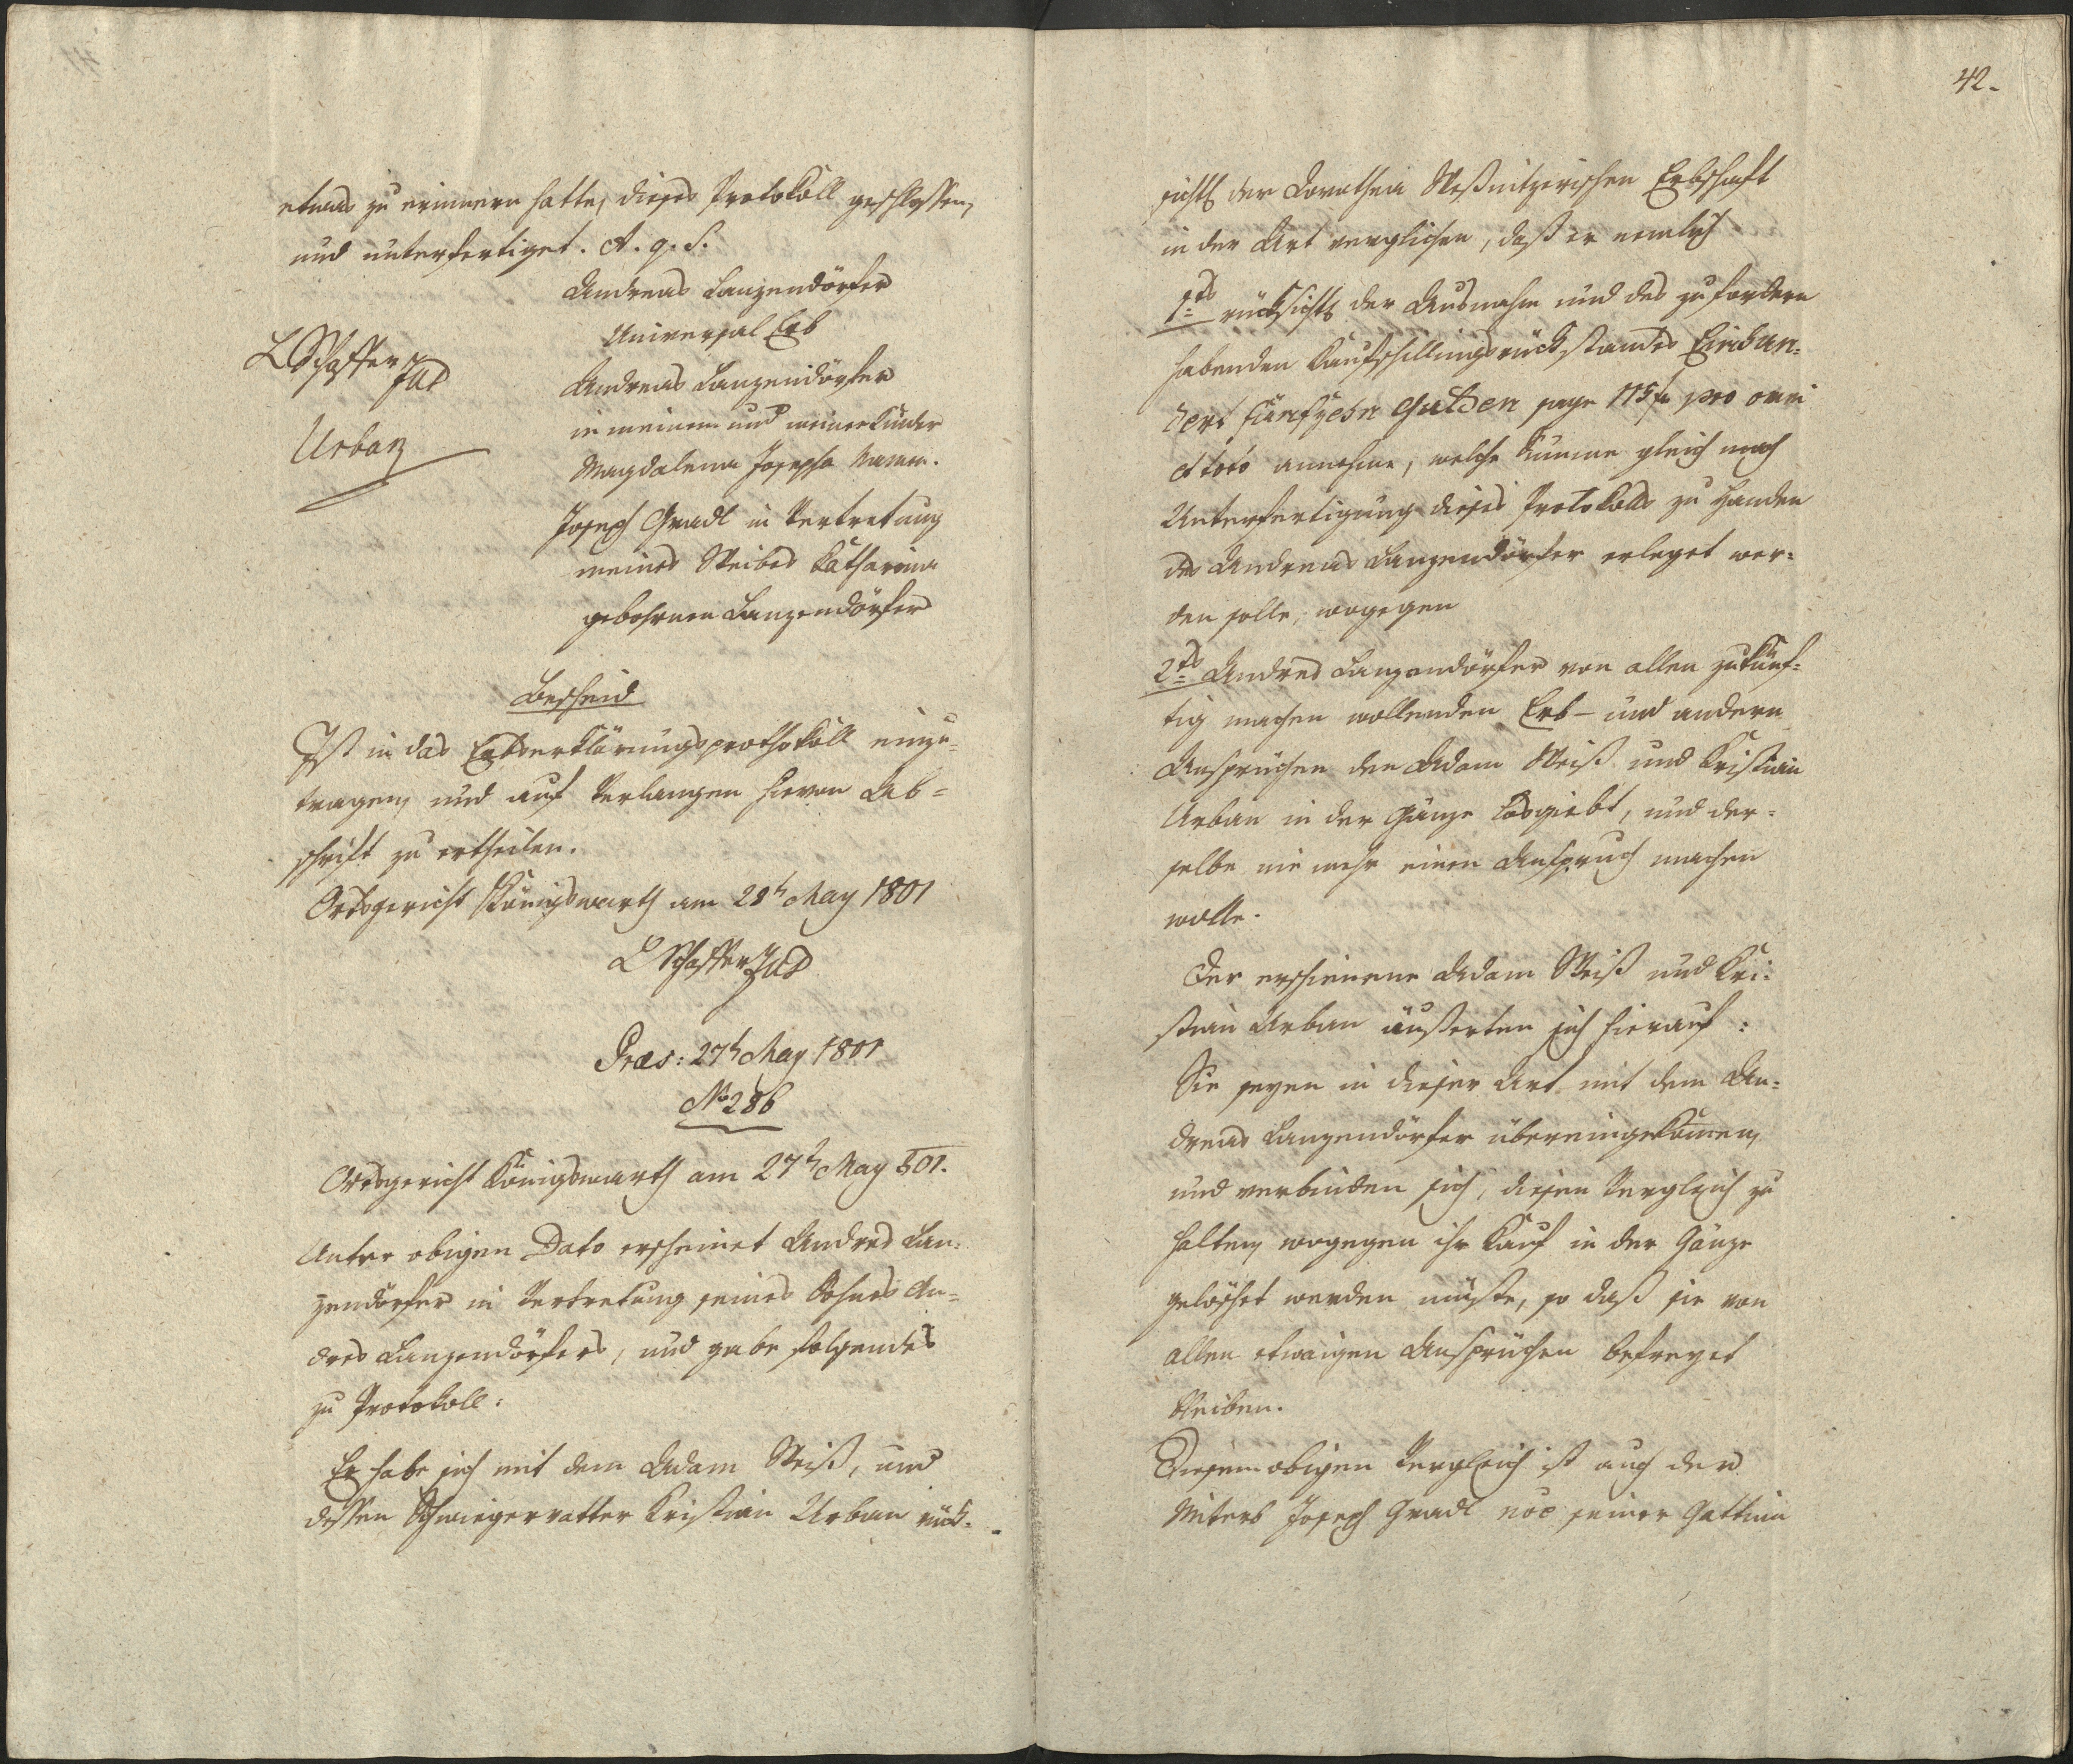 etwas zu erinnern hatte, dieses Protokoll geschlossen,
und unterfertiget. A. q. S.
Andreas Lanzendörfer
Universal Erb
LSchaffer JuD
Urban
Andreas Lanzendörfer
in meinem und meiner Kinder
Magdalena Josepha Namen.
Joseph Gradl in Vertretung
meines Weibes Katharina
gebohrnen Lanzendörfer
Bescheid
Ist in das Erbserklärungsprothokoll einzu-
tragen, und auf Verlangen hievon Ab-
schrift zu ertheilen.
Ortsgericht Königswarth am 28t May 1801
LSchaffer JuD
Præs: 27t May 1801
No 286
Ortsgericht Königswarth am 27t May 801.
Unter obigen Dato erscheinet Andres Lan-
zendörfer in Vertretung seines Sohnes An-
dres Lanzendörfers, und gabe folgendes
zu Protokoll:
Er habe sich mit dem Adam Weiß, und
dessen Schwiegervatter Kristian Urban rück-
42.
sichtl der Dorothea Weßnitzerischen Erbschaft
in der Art verglichen, daß er nemlich
1tens rücksichtl der Ausnahm und des zu fordern
habenden Kaufschillingsrückstandes Einhun-
dert fünfzehn Gulden sage 115 f pro omni
et toto annehme, welche Summe gleich nach
Unterfertigung dieses Protokolls zu Handen
des Andreas Lanzendörfer erleget wer-
den solle, wogegen
2tens Andres Lanzendörfer von allen zukünf-
tig machen wollenden Erb- und andern
Ansprüchen den Adam Weiß und Kristian
Urban in der Gänze losgiebt, und der-
selbe nie mehr einen Anspruch machen
wolle.
Der erschienene Adam Weiß und Kri-
stian Urban äußerten sich hierauf:
Sie seyen in dieser Art mit dem An-
dreas Lanzendörfer übereingekommen,
und verbinden sich, diesen Vergleich zu
halten, wogegen ihr Kauf in der Gänze
gelöschet werden müßte, so daß sie von
allen etwaigen Ansprüchen befreyet
bleiben.
Diesem obigen Vergleich ist auch der
Miterb Joseph Gradl noe seiner Gattinn